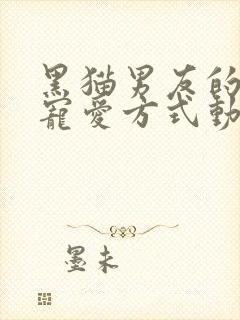 黑猫男友的
寵愛方式動
墨未